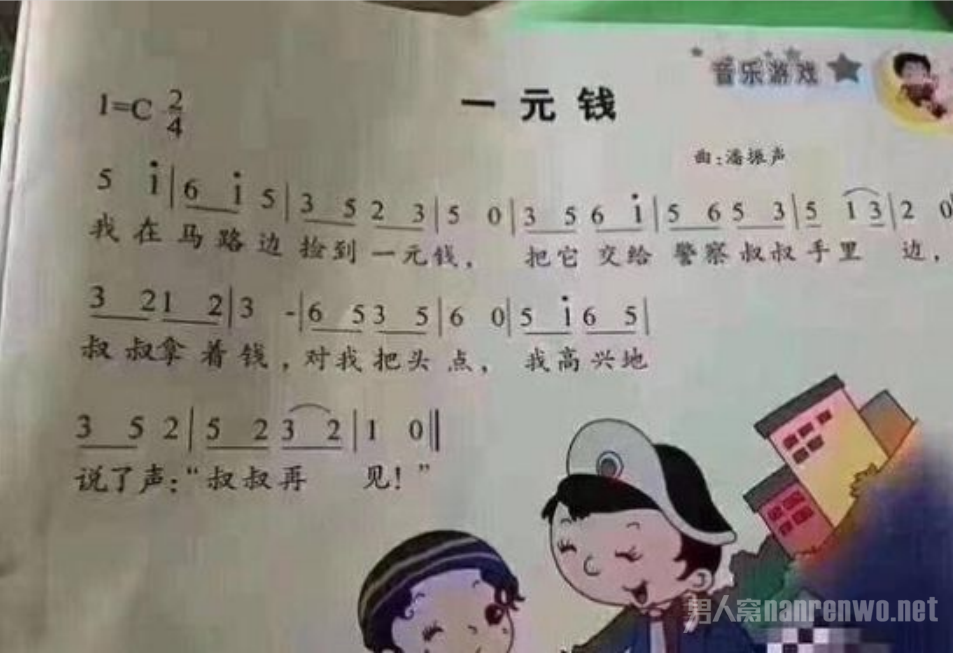 音乐游戏
一元钱
1=C 2/4
曲:潘振声
5 i|6 i 5|3 5 2 3|5 0|3 5 6 i|5 6 5 3|5 1 3|2 0
我在马路边捡到一元钱, 把它交给警察叔叔手里 边,
3 2 1 2|3 -|6 5 3 5|6 0|5 i 6 5|
叔叔拿着钱,对我把头点, 我高兴地
3 5 2|5 2 3 2|1 0‖
说了声:“叔叔再 见!”
男人窝nanrenwo.net